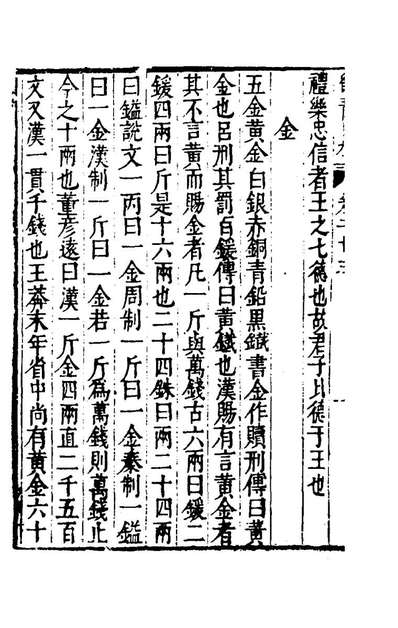 禮樂忠信者王之七德也故君子比德于王也
金
五金黄金白銀赤銅青鉛黒鐡書金作贖刑傳曰黄
金也呂刑其罰百鍰傳曰黄鐡也漢賜有言黄金者
其不言黄而賜金者凡一斤與萬錢古六兩曰鍰二
鍰四兩曰斤是十六兩也二十四銖曰兩二十四兩
曰鎰說文一丙曰一金周制一斤曰一金秦制一鎰
曰一金漢制一斤曰一金若一斤爲萬錢則萬錢止
今之十兩也董彦遠曰漢一斤金四兩直二千五百
文又漢一貫千錢也王莽末年省中尚有黄金六十